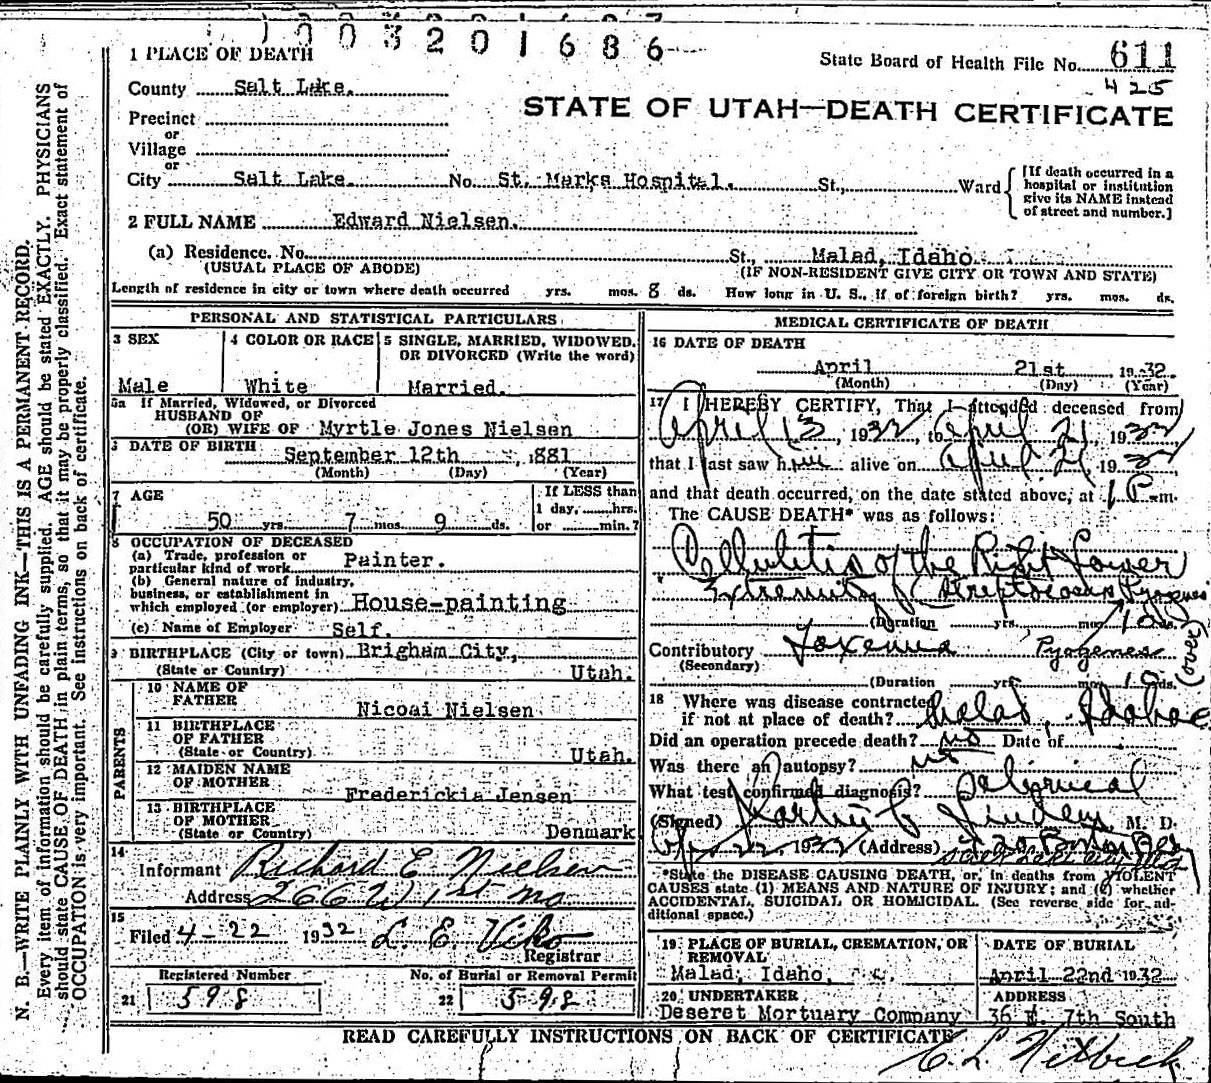 1003201686
1 PLACE OF DEATH
State Board of Health File No. 611
425
County Salt Lake.
STATE OF UTAH—DEATH CERTIFICATE
Precinct
or
Village
or
City Salt Lake. No. St. Marks Hospital. St., Ward
[If death occurred in a hospital or institution give its NAME instead of street and number.]
2 FULL NAME Edward Nielsen.
(a) Residence. No. St., Malad, Idaho
(USUAL PLACE OF ABODE) (IF NON-RESIDENT GIVE CITY OR TOWN AND STATE)
Length of residence in city or town where death occurred yrs. mos. 8 ds. How long in U. S., if of foreign birth? yrs. mos. ds.
PERSONAL AND STATISTICAL PARTICULARS
3 SEX 4 COLOR OR RACE 5 SINGLE, MARRIED, WIDOWED, OR DIVORCED (Write the word)
Male White Married.
5a If Married, Widowed, or Divorced
HUSBAND OF
(OR) WIFE OF Myrtle Jones Nielsen
6 DATE OF BIRTH
September 12th , 1881
(Month) (Day) (Year)
7 AGE
If LESS than
1 day, hrs.
50 yrs. 7 mos. 9 ds. or min.?
8 OCCUPATION OF DECEASED
(a) Trade, profession or
particular kind of work Painter.
(b) General nature of industry,
business, or establishment in
which employed (or employer) House-painting
(c) Name of Employer Self.
9 BIRTHPLACE (City or town) Brigham City,
(State or Country) Utah.
PARENTS
10 NAME OF
FATHER Nicoai Nielsen
11 BIRTHPLACE
OF FATHER
(State or Country) Utah.
12 MAIDEN NAME
OF MOTHER Frederickia Jensen
13 BIRTHPLACE
OF MOTHER
(State or Country) Denmark
14
Informant Richard E Nielsen
Address 266 W 1st No
15
Filed 4-22 1932 L. E. Viko
Registrar
Registered Number No. of Burial or Removal Permit
21 598 22 598
MEDICAL CERTIFICATE OF DEATH
16 DATE OF DEATH
April 21st , 1932.
(Month) (Day) (Year)
17 I HEREBY CERTIFY, That I attended deceased from
April 13, 1932, to April 21, 1932
that I last saw him alive on April 21 1932,
and that death occurred, on the date stated above, at 1 P m.
The CAUSE DEATH* was as follows:
Cellulitis of the Right Lower
Extremity Streptococcus Pyogenes
(Duration yrs. mos. 10 ds.
Contributory Toxemia Pyogenes
(Secondary)
(over)
(Duration yrs. mos. 10 ds.
18 Where was disease contracted
if not at place of death? Malad, Idaho
Did an operation precede death? no Date of
Was there an autopsy? no
What test confirmed diagnosis? Clinical
(Signed) M. D.
22, 1932 (Address)
*State the DISEASE CAUSING DEATH, or, in deaths from VIOLENT
CAUSES state (1) MEANS AND NATURE OF INJURY; and (2) whether
ACCIDENTAL, SUICIDAL OR HOMICIDAL. (See reverse side for additional space.)
19 PLACE OF BURIAL, CREMATION, OR REMOVAL DATE OF BURIAL
Malad, Idaho, April 22nd 1932
20 UNDERTAKER ADDRESS
Deseret Mortuary Company 36 E. 7th South
READ CAREFULLY INSTRUCTIONS ON BACK OF CERTIFICATE
N. B.—WRITE PLAINLY WITH UNFADING INK—THIS IS A PERMANENT RECORD.
Every item of information should be carefully supplied. AGE should be stated EXACTLY. PHYSICIANS
should state CAUSE OF DEATH in plain terms, so that it may be properly classified. Exact statement of
OCCUPATION is very important. See instructions on back of certificate.